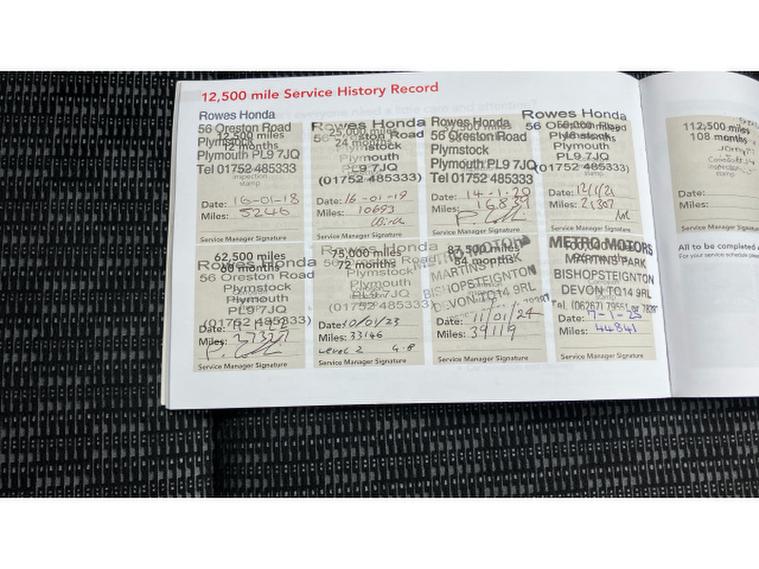 12,500 mile Service History Record
Rowes Honda
56 Oreston Road
12,500 miles
Plymstock
12 months
Plymouth PL9 7JQ
Tel 01752 485333
inspection
stamp
Date: 16-01-18
Miles: 5246
Service Manager Signature
Rowes Honda
25,000 miles
56 Oreston Road
24 months
Plymstock
Plymouth
PL9 7JQ
(01752 485333)
Date: 16-01-19
Miles: 10693
Service Manager Signature
Rowes Honda
56 Oreston Road
Plymstock
Plymouth PL9 7JQ
Tel 01752 485333
Date: 14-1-20
Miles: 16839
Service Manager Signature
Rowes Honda
56 Oreston Road
Plymstock
Plymouth
PL9 7JQ
(01752 485333)
stamp
Date: 12/1/21
Miles: 21307
Service Manager Signature
62,500 miles
Rowes Honda
60 months
56 Oreston Road
Plymstock
Plymouth
PL9 7JQ
(01752 485333)
Date:
Miles: 27327
Service Manager Signature
Rowes Honda
75,000 miles
56 Oreston Road
72 months
Plymstock
Plymouth
PL9 7JQ
(01752 485333)
Date: 10/01/23
Miles: 33146
Level 2
Service Manager Signature
87,500 miles
METRO MOTORS
84 months
MARTINS PARK
BISHOPSTEIGNTON
DEVON TQ14 9RL
Date: 11/01/24
Miles: 39119
Service Manager Signature
METRO MOTORS
MARTINS PARK
BISHOPSTEIGNTON
DEVON TQ14 9RL
Date: 7-1-25
Miles: 44841
Service Manager Signature
112,500 miles
108 months
stamp
Date:
Miles:
Service Manager Signature
All to be completed
For your service schedule please